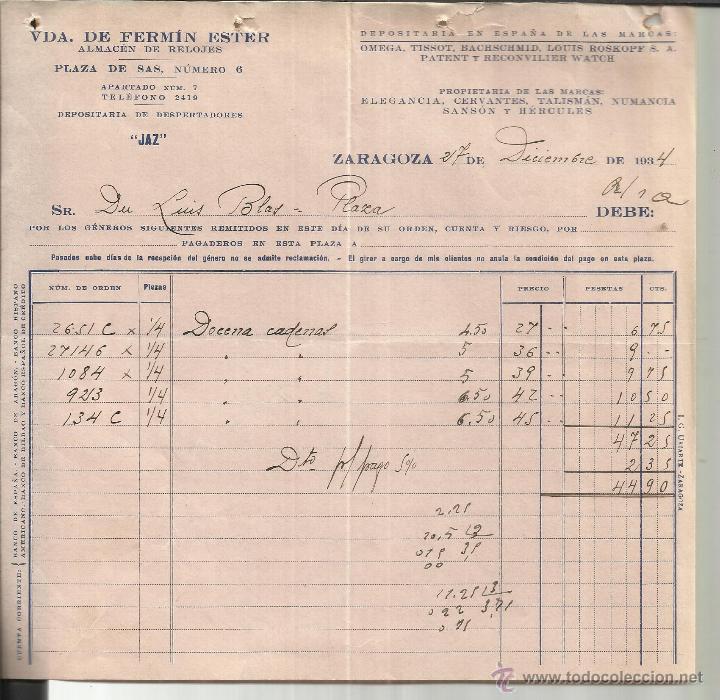 VDA. DE FERMÍN ESTER
ALMACÉN DE RELOJES
PLAZA DE SAS, NÚMERO 6
APARTADO NÚM. 7
TELÉFONO 2419
DEPOSITARIA DE DESPERTADORES
"JAZ"
DEPOSITARIA EN ESPAÑA DE LAS MARCAS:
OMEGA, TISSOT, BACHSCHMID, LOUIS ROSKOPF S. A.
PATENT Y RECONVILIER WATCH
PROPIETARIA DE LAS MARCAS:
ELEGANCIA, CERVANTES, TALISMÁN, NUMANCIA
SANSÓN Y HÉRCULES
ZARAGOZA 27 DE Diciembre DE 1934
SR. Dn Luis Blas = Plaza DEBE:
POR LOS GÉNEROS SIGUIENTES REMITIDOS EN ESTE DÍA DE SU ORDEN, CUENTA Y RIESGO, POR
PAGADEROS EN ESTA PLAZA A
Pasados ocho días de la recepción del género no se admite reclamación. - El girar a cargo de mis clientes no anula la condición del pago en esta plaza.
NÚM. DE ORDEN Piezas PRECIO PESETAS CTS.
2651 C x 1/4 Docena cadenas 4.50 27 - - 6 75
27146 x 1/4 " " 5 36 - - 9 - -
1084 x 1/4 " " 5 39 - - 9 75
923 1/4 " " 6.50 42 - - 10 50
134 C 1/4 " " 6.50 45 - - 11 25
47 25
Dto p/ pago 5% 2 35
44 90
2,25
11.25 3
0 22 3,75
CUENTA CORRIENTE: BANCO DE ESPAÑA. - BANCO DE ARAGÓN. - BANCO HISPANO AMERICANO. - BANCO DE BILBAO Y BANCO ESPAÑOL DE CRÉDITO
I. G. URIARTE - ZARAGOZA
www.todocoleccion.net